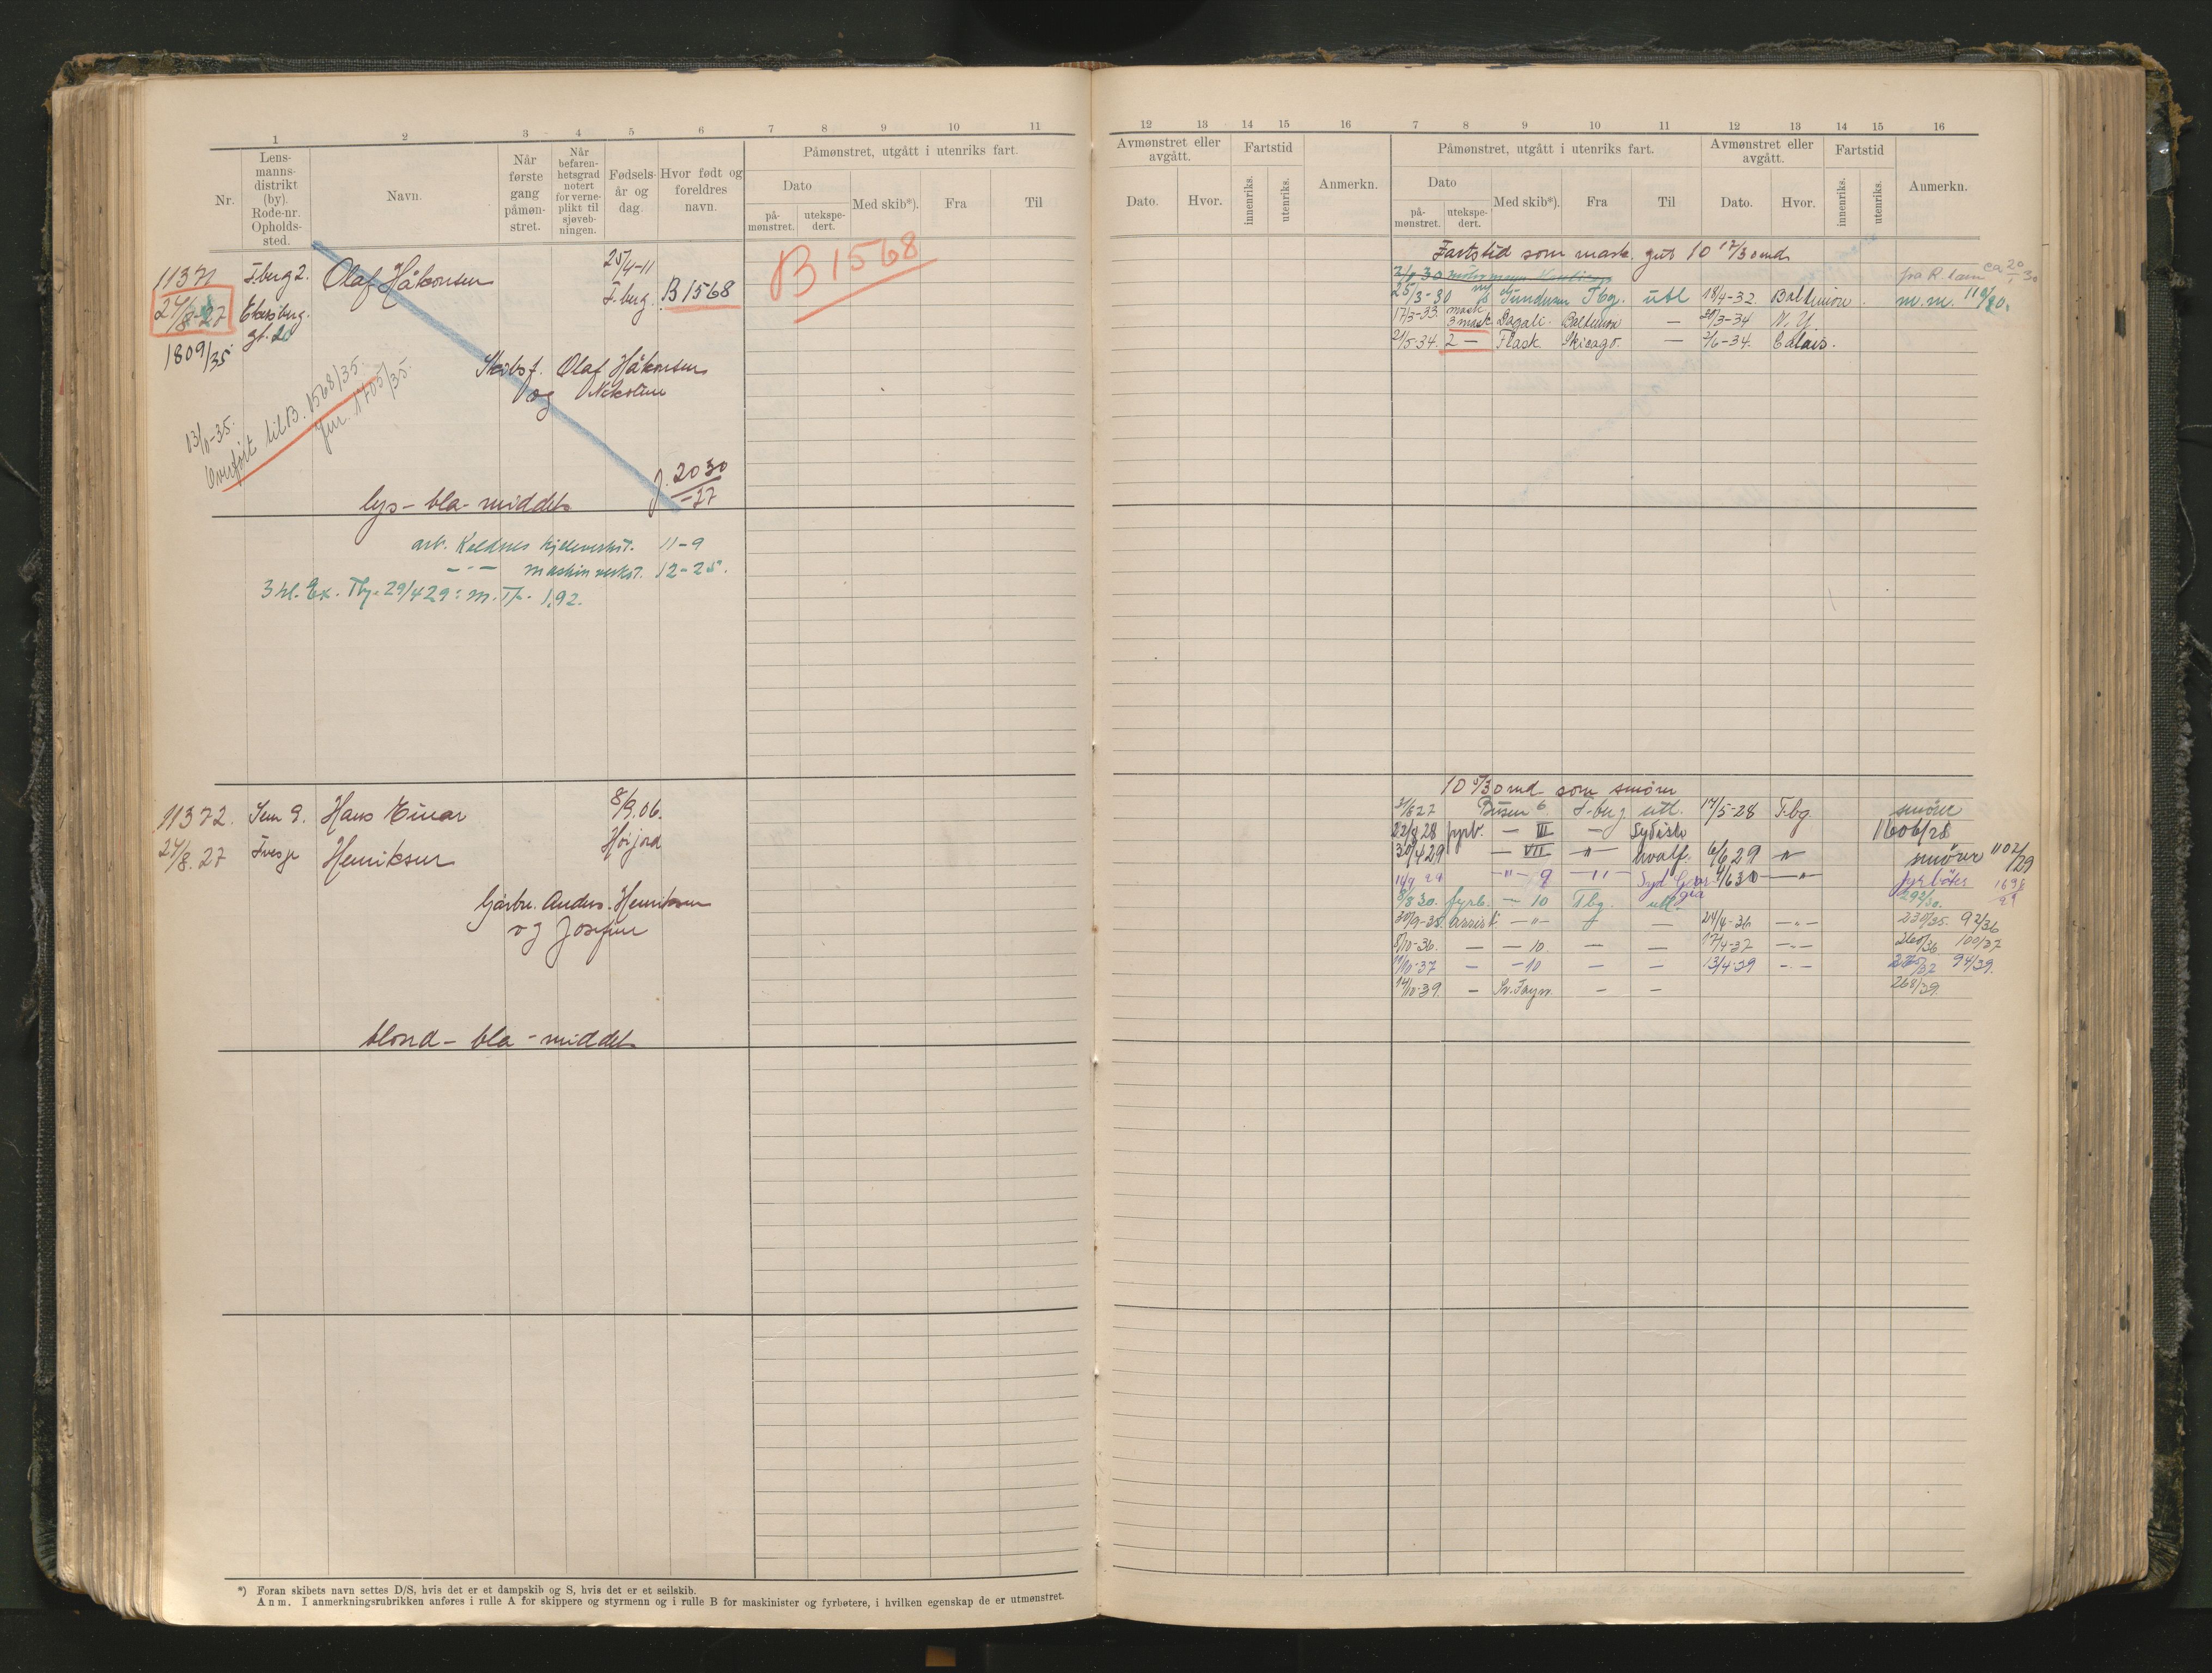 1 2 3 4 5 6 7 8 9 10 11
Nr.
Lens-
manns-
distrikt
(by).
Rode-nr.
Opholds-
sted.
Navn.
Når
første
gang
påmøn-
stret.
Når
befaren-
hetsgrad
notert
for verne-
plikt til
sjøveb-
ningen.
Fødsels-
år og
dag.
Hvor født og
foreldres
navn.
Påmønstret, utgått i utenriks fart.
Dato
på-
mønstret.
utekspe-
dert.
Med skib*).
Fra
Til
11371 T.berg 2. Olaf Håkonsen 25/4-11
24/8-27
T.berg. B 1568
B 1568
1809/35.
Skibsf. Olaf Håkonsen
og Nikoline
13/11-35.
Overført til B. 1568/35.
Jnr. 1705/35.
J. 2030
-27
lys - bla - middels
arb. Kaldnes kjeleverkst. 11-9
- " - maskinverkst. 12-25.
3 kl. Ex. Tbg. 29/4 29: M. Tk. 1,92.
11372. Sem 9. Hans Einar 8/9.06.
24/8.27 Henriksen Høijord
Gårbr. Anders Henriksen
og Josefine
blond - bla - middels
*) Foran skibets navn settes D/S, hvis det er et dampskib og S, hvis det er et seilskib.
Anm. I anmerkningsrubrikken anføres i rulle A for skippere og styrmenn og i rulle B for maskinister og fyrbøtere, i hvilken egenskap de er utmønstret.
12 13 14 15 16 7 8 9 10 11 12 13 14 15 16
Avmønstret eller
avgått.
Dato.
Hvor.
Fartstid
innenriks.
utenriks.
Anmerkn.
Påmønstret, utgått i utenriks fart.
Dato
på-
mønstret.
utekspe-
dert.
Med skib*).
Fra
Til
Avmønstret eller
avgått.
Dato.
Hvor.
Fartstid
innenriks.
utenriks.
Anmerkn.
Fartstid som mask. gut 10 17/30 md
25/3-30 Tbg. utl 18/4-32. Baltimore. m.m.
17/3-33. mask
3 mask Dagali. Baltimore — 20/3-34 N.Y.
21/5-34. 2 — Flask. Skicago. — 2/6-34. Calais.
som smører
Busen 6 T-berg utl. 14/5-28 T.bg. smører
22/8 28 fyrb. — III — Sydishv 1606/28
30/4 29 — VII — " — hvalf. 6/6 29 — " — smører 1102/29
— " — 9 — " — Syd Georgia — " — fyrbøter 1698/29
8/8 30. fyrb. — 10 Tbg. utl.
30/9-35. assist — " — — 24/4-36 — " — 230/35. 92/36
8/10-36. — — 10 — — 17/4-37 — " — 260/36 100/37
— — 10 — — 13/4-39 — " — 94/39.
14/10-39. — Sv. Foyn. — — 268/39.